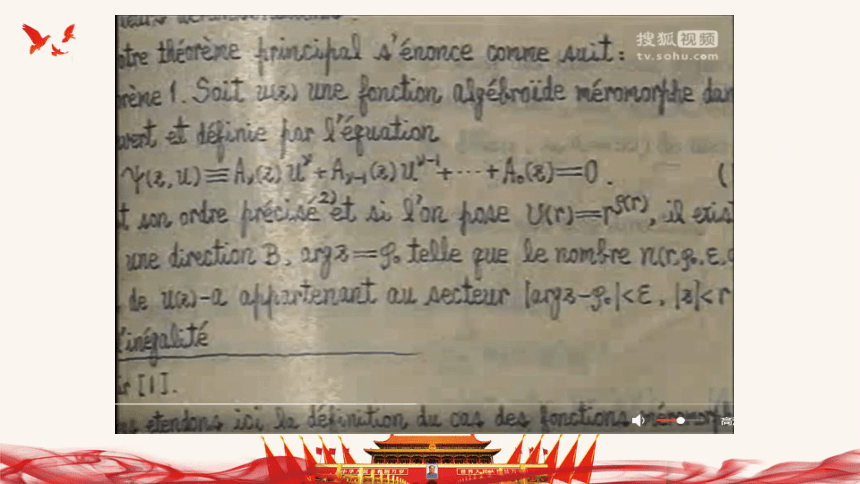 搜狐视频
tv.sohu.com
otre théorème principal s'énonce comme suit:
rème 1. Soit u(z) une fonction algébroïde méromorphe dan
uvert et définie par l'équation
Ψ(z,u)≡Aν(z)u^ν+Aν₋₁(z)u^ν⁻¹+⋯+A₀(z)=0. (
t son ordre précisé²⁾ et si l'on pose U(r)=r^ρ(r), il exis
une direction B, arg z=φ₀ telle que le nombre n(r,φ₀,ε,
de u(z)-a appartenant au secteur |arg z-φ₀|<ε, |z|<r
l'inégalité
ir [1].
us etendons ici la définition du cas des fonctions méromorph